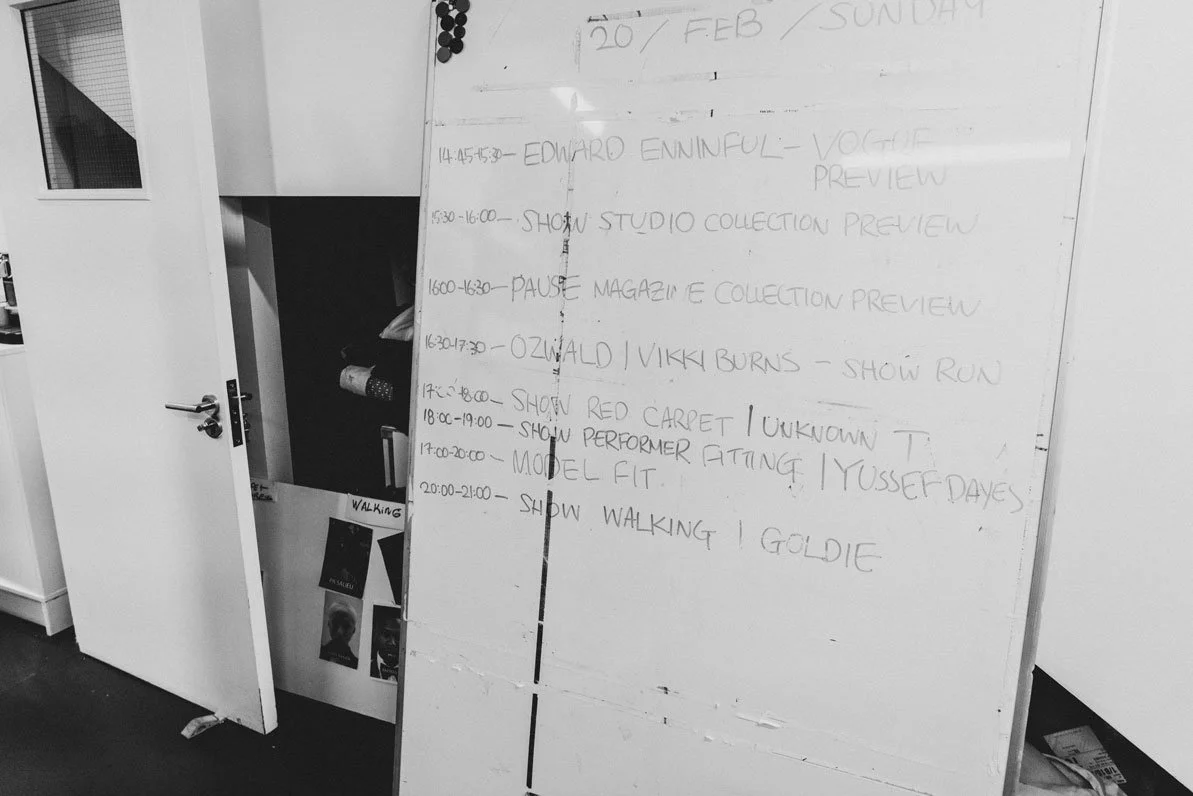 20 / FEB / SUNDAY
14:45-15:30 — EDWARD ENNINFUL - VOGUE
PREVIEW
15:30-16:00 — SHOW STUDIO COLLECTION PREVIEW
1600-1630 — PAUSE MAGAZINE COLLECTION PREVIEW
16:30-17:30 — OZWALD | VIKKI BURNS - SHOW RUN
18:00 — SHOW RED CARPET | UNKNOWN T
18:00-19:00 — SHOW PERFORMER FITTING | YUSSEF DAYES
17:00-20:00 — MODEL FIT
20:00-21:00 — SHOW WALKING | GOLDIE
WALKING